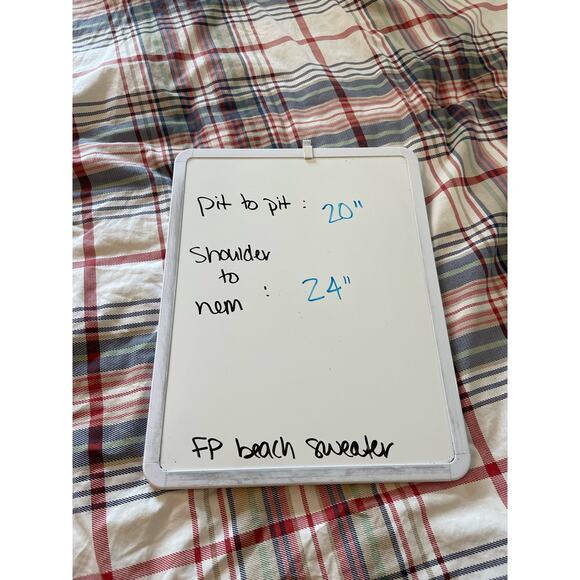 pit to pit : 20"
Shoulder
to
hem : 24"
FP beach sweater